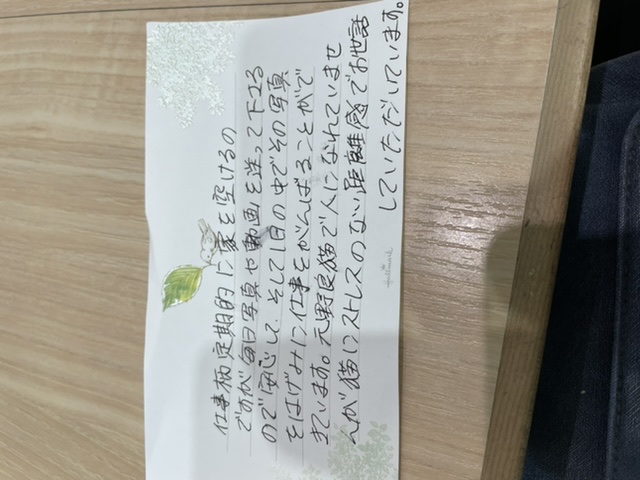 仕事柄定期的に家を空けるの
ですが毎日写真や動画を送って下さる
ので安心して、そして1日の中でその写真
をはげみに仕事をがんばることがで
きています。元野良猫で人になれていませ
んが猫にストレスのない距離感でお世話
していただいています。
Hallmark